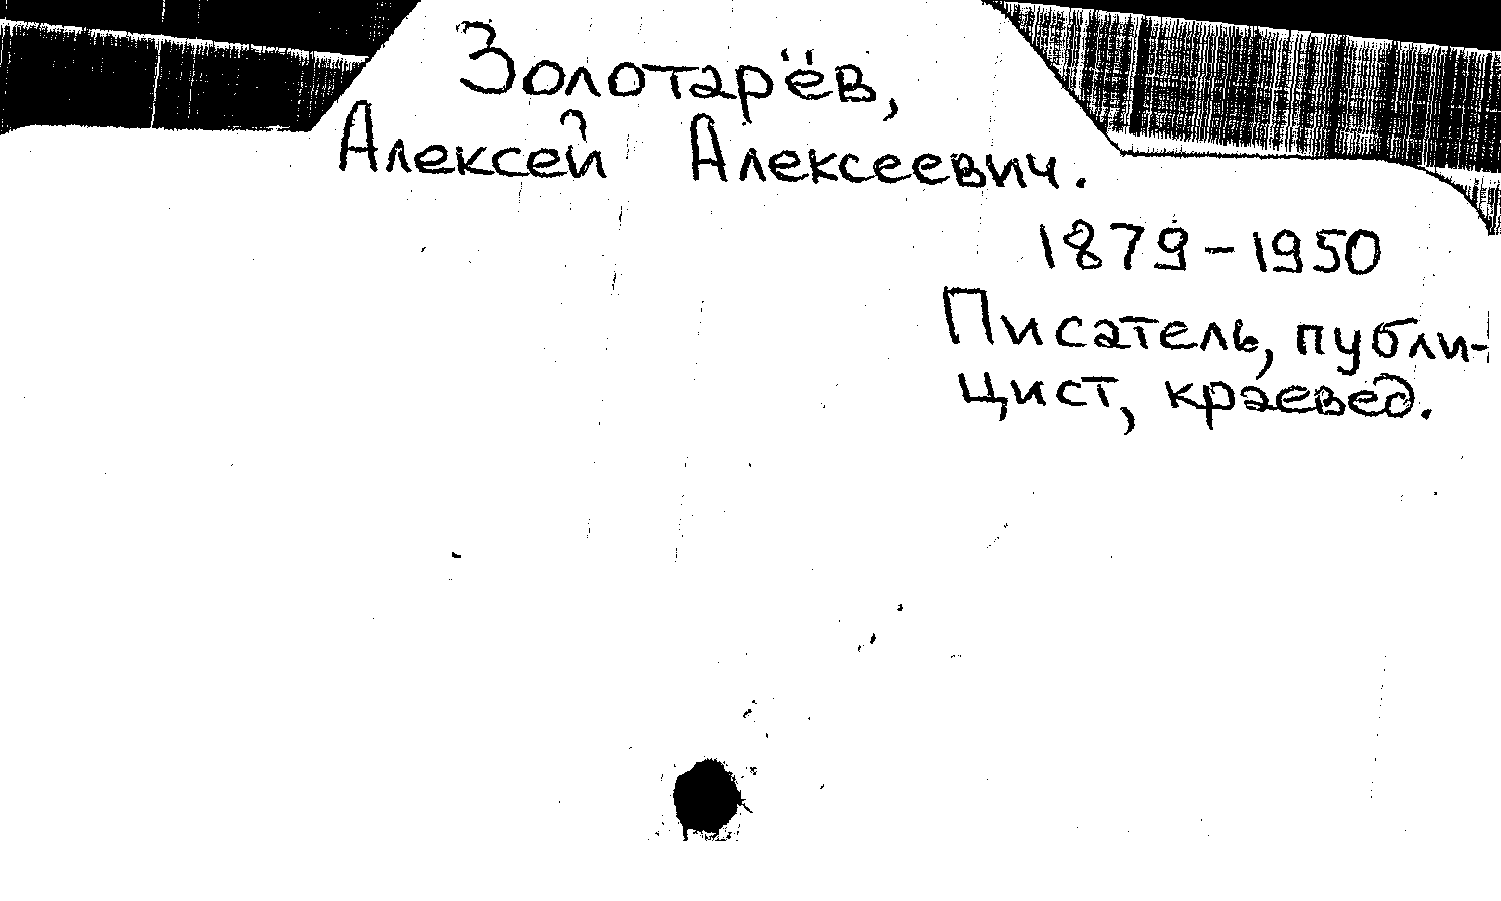 Золотарёв,
Алексей Алексеевич.
1879-1950
Писатель, публи-
цист, краевед.